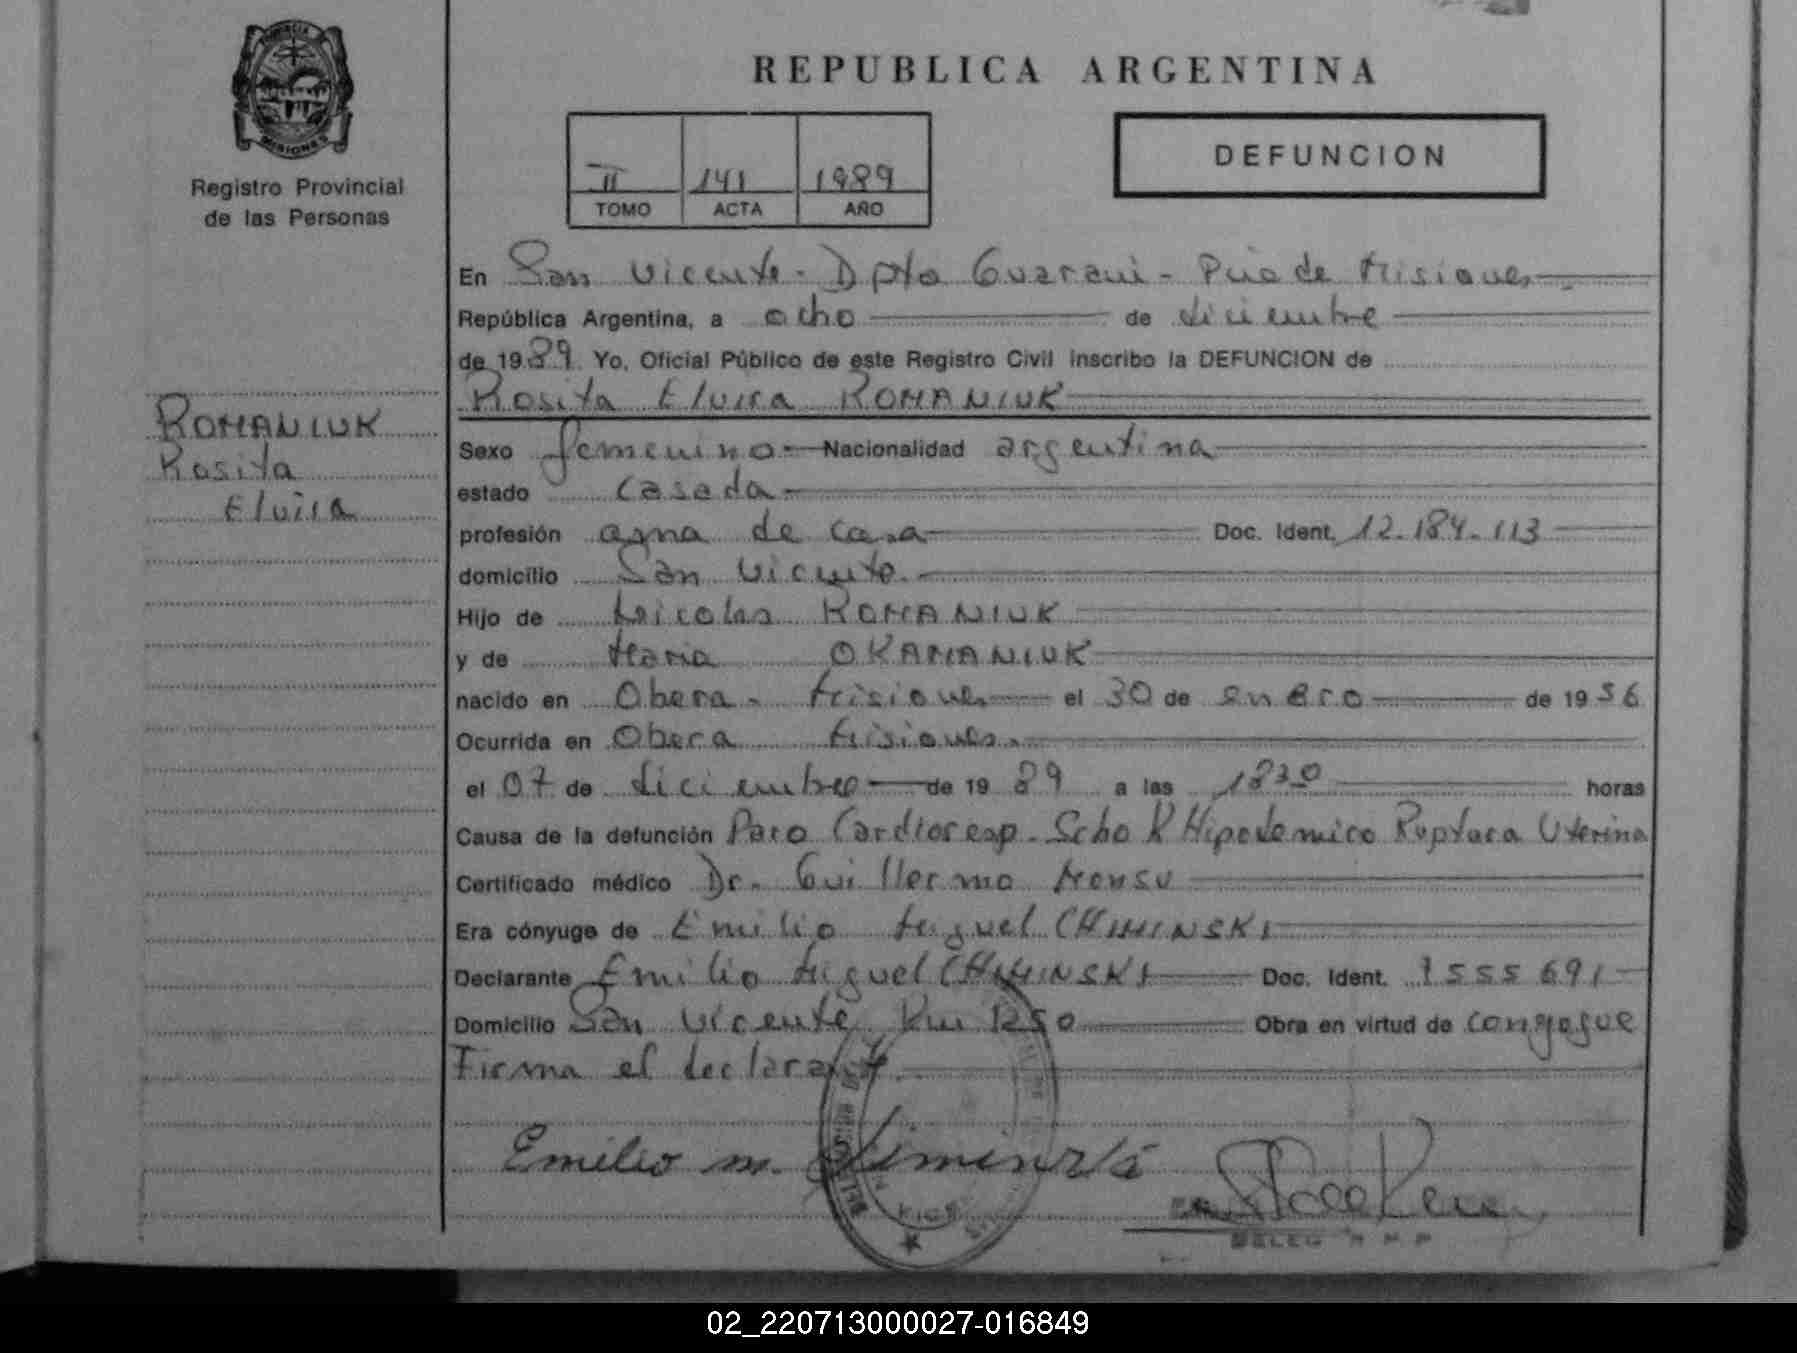 PROVINCIA
MISIONES
Registro Provincial
de las Personas
REPUBLICA ARGENTINA
II 141 1989
TOMO ACTA AÑO
DEFUNCION
En San Vicente - Dpto Guarani - Pcia de Misiones
República Argentina, a ocho de diciembre
de 1989 Yo, Oficial Público de este Registro Civil inscribo la DEFUNCION de
Rosita Elvira ROMANIUK
ROMANIUK
Rosita
Elvira
Sexo femenino Nacionalidad argentina
estado casada
profesión ama de casa Doc. Ident. 12.184.113
domicilio San Vicente
Hijo de Nicolas ROMANIUK
y de Maria OKAMANIUK
nacido en Obera - Misiones el 30 de enero de 1956
Ocurrida en Obera Misiones
el 07 de diciembre de 1989 a las 1830 horas
Causa de la defunción Paro Cardioresp. Hipovemico Ruptura Uterina
Certificado médico Dr. Guillermo
Era cónyuge de Emilio Miguel CHIMINSKI
Declarante Emilio Miguel CHIMINSKI Doc. Ident. 7555691
Domicilio San Vicente Km 1250 Obra en virtud de conyogue
Firma el declarante.
Emilio M.
02_220713000027-016849